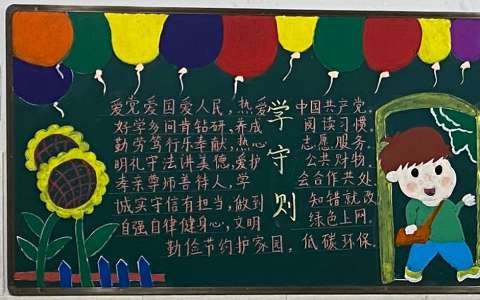 学守则
爱党爱国爱人民，热爱中国共产党。
好学多问肯钻研，养成阅读习惯。
勤劳笃行乐奉献，热心志愿服务。
明礼守法讲美德，爱护公共财物。
孝亲尊师善待人，学会合作共处。
诚实守信有担当，做到知错就改
自强自律健身心，文明绿色上网。
勤俭节约护家园，低碳环保。